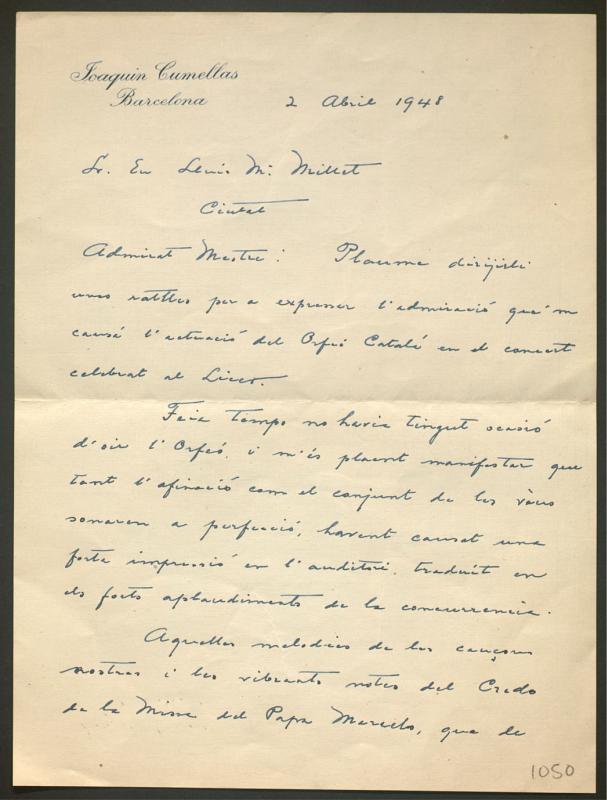 Joaquin Cumellas
Barcelona
2 Abril 1948
Sr. En Lluis Mª Millet
Ciutat
Admirat Mestre: Plaume dirijirli
unes rattlles per a expressar l'admiració que'm
causá l'actuació del Orfeó Catalá en el concert
celebrat al Liceo.
Feia temps no havia tingut ocasió
d'oir l'Orfeó, i m'és plaent manifestar que
tant l'afinació com el conjunt de les veus
sonaren a perfecció, havent causat una
forta impressió en l'auditori, traduit en
els forts aplaudiments de la concurrencia.
Aquelles melodies de les cançons
nostras i les vibrants notes del Credo
de la Missa del Papa Marcelo, que de
1050